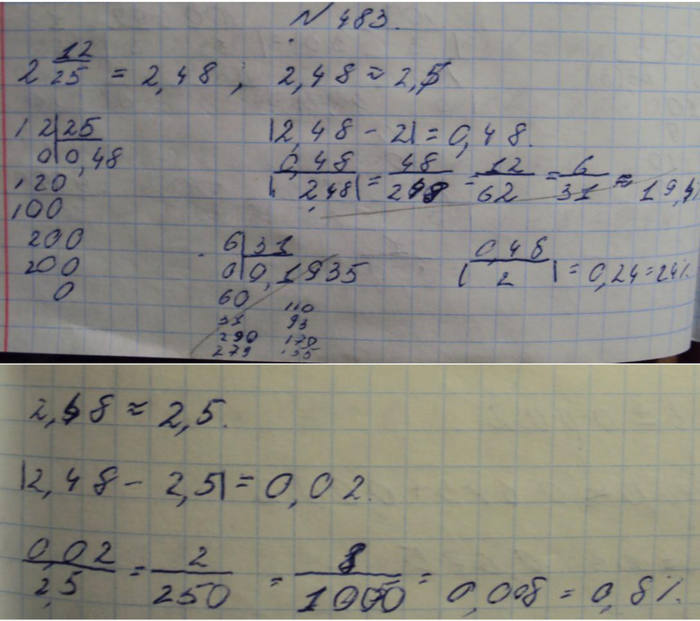 № 483.
2 12/25 = 2,48 ; 2,48 ≈ 2,5
12 | 25
0 | 0,48
120
100
200
200
0
|2,48 - 2| = 0,48.
0,48/|2,48| = 48/248 = 12/62 = 6/31 ≈ 19,4
6 | 31
0 | 0,1935
60
31
290
279
110
93
170
155
|0,48/2| = 0,24 = 24%
2,48 ≈ 2,5.
|2,48 - 2,5| = 0,02.
0,02/2,5 = 2/250 = 8/1000 = 0,008 = 0,8%